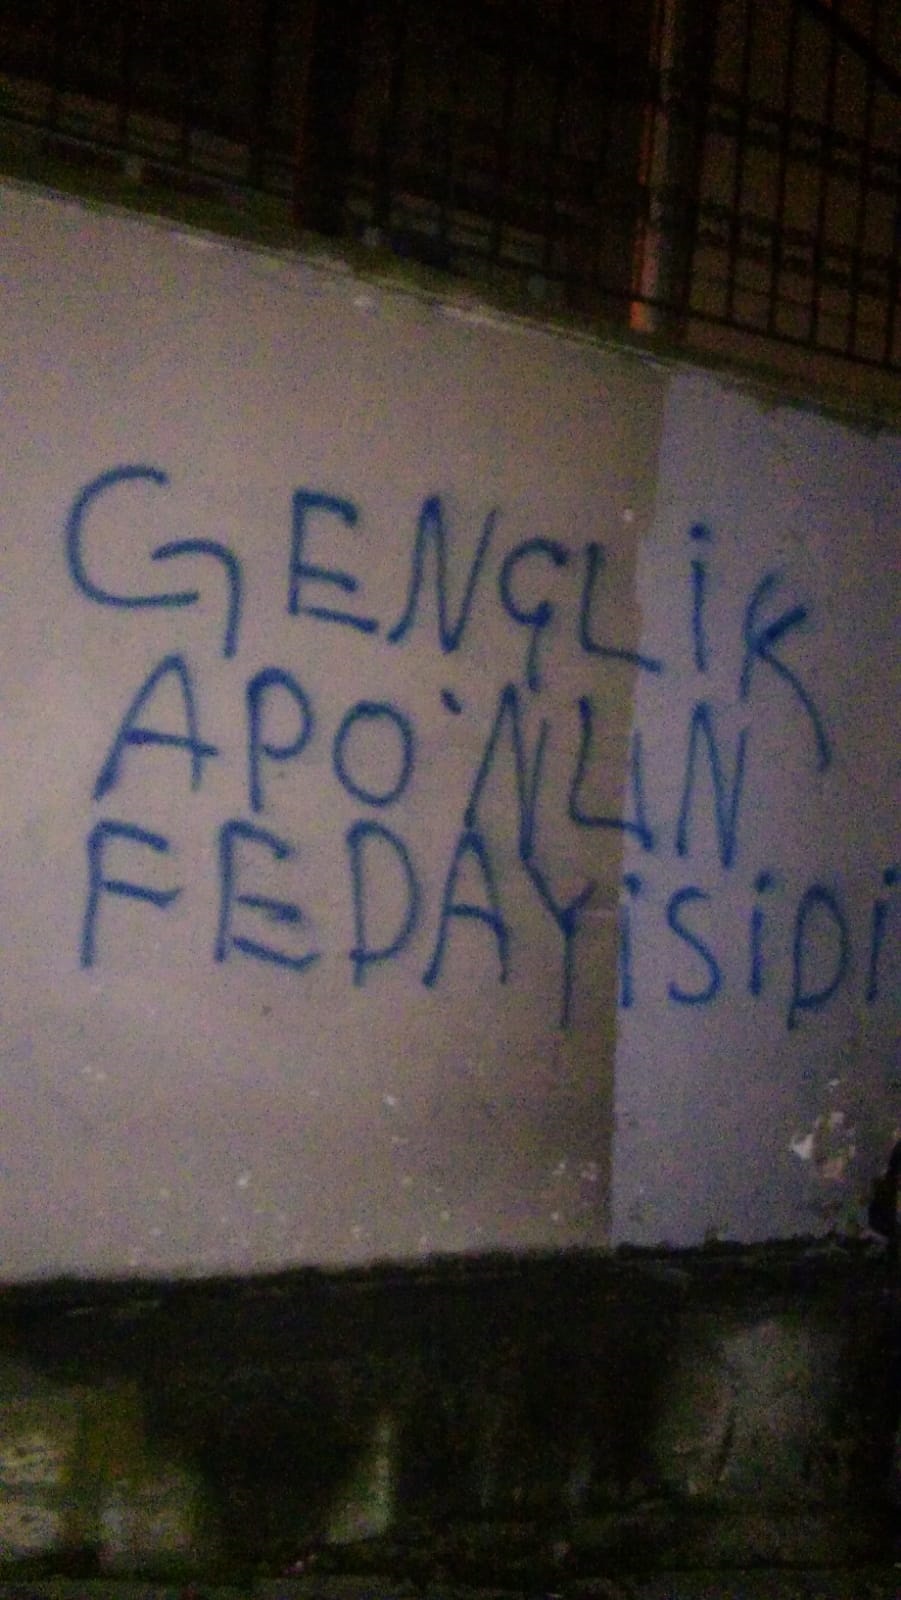 GENÇLİK
APO'NUN
FEDAYİSİDİ